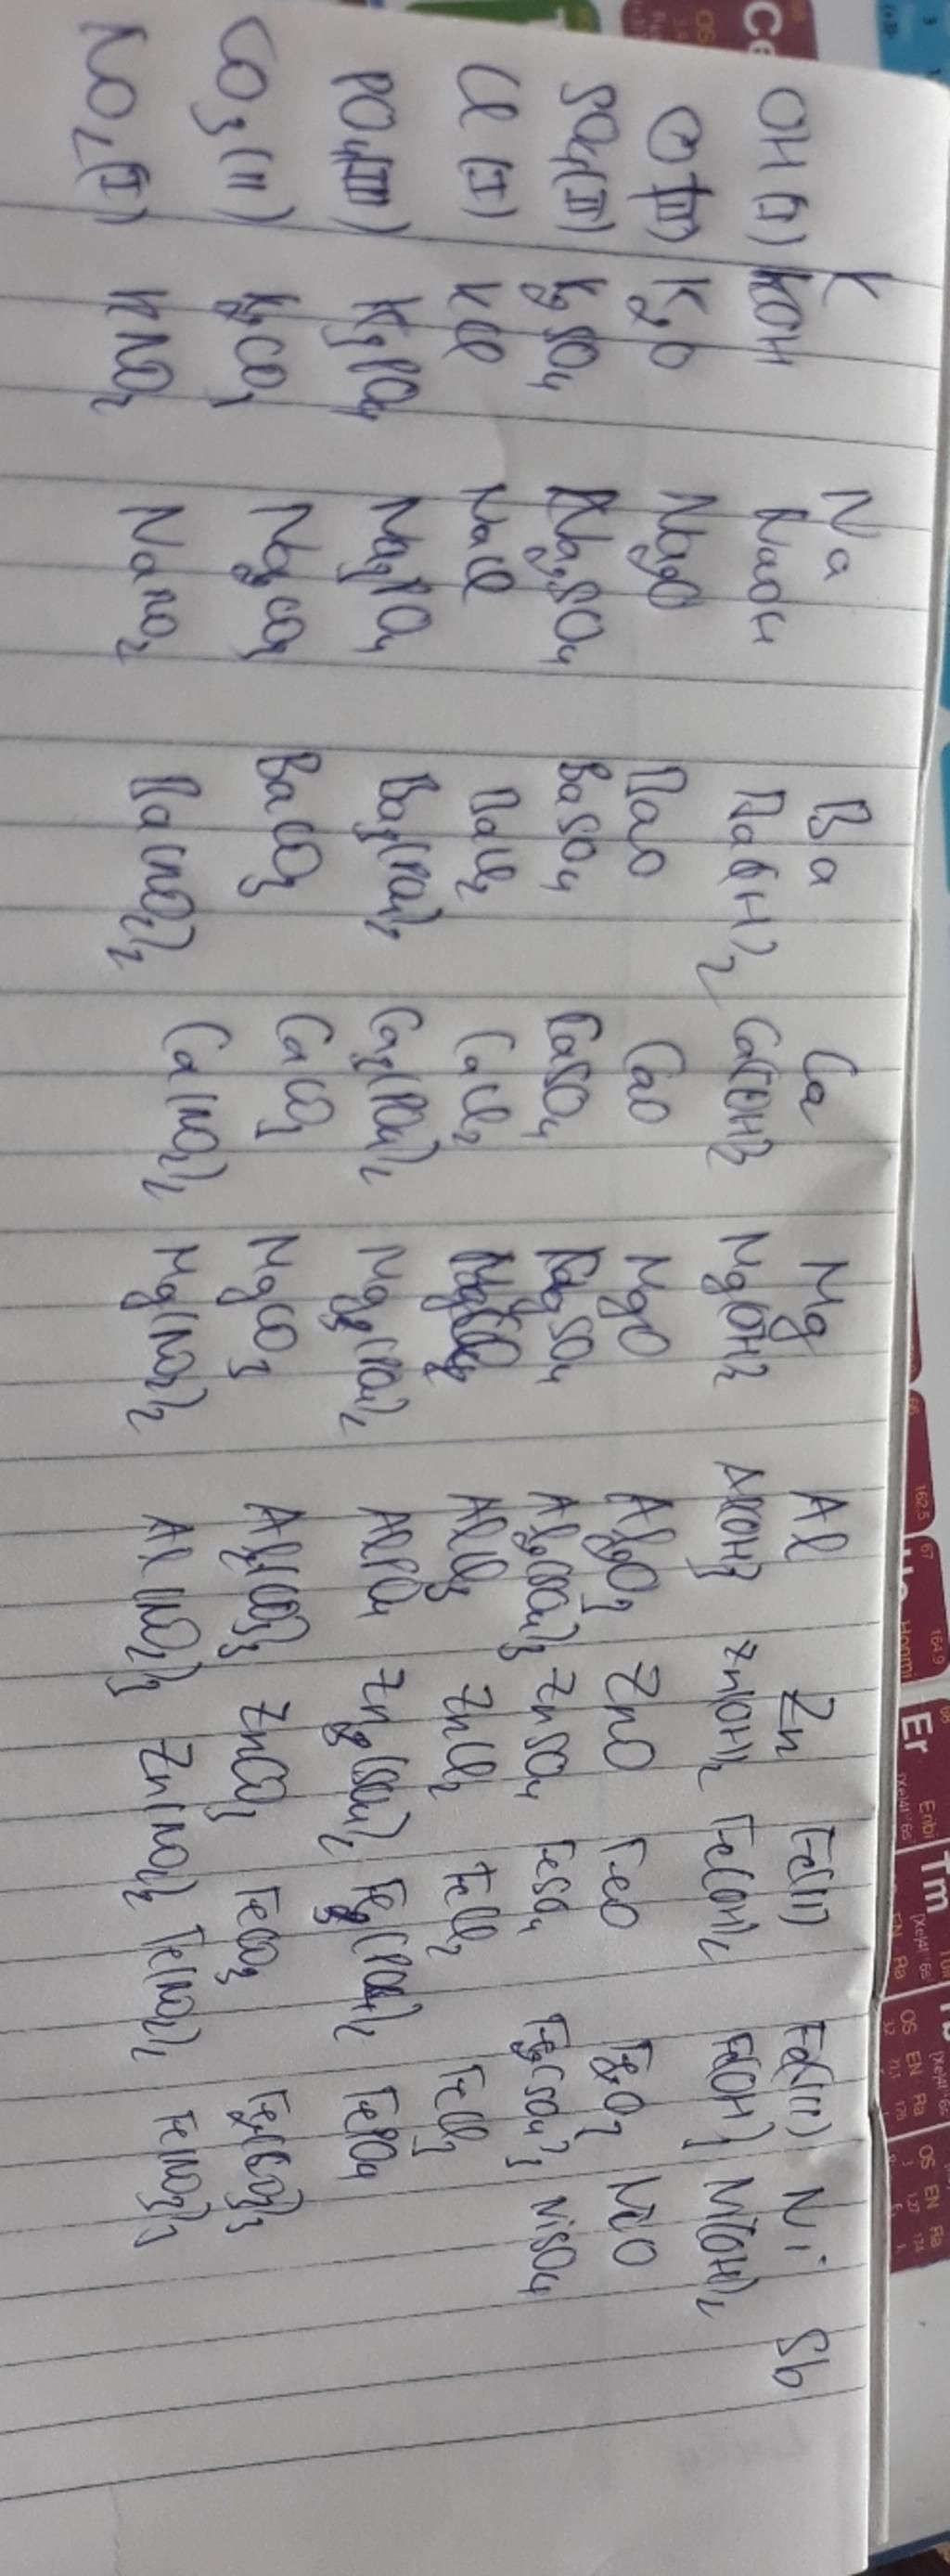 K Na Ba Ca Mg Al Zn Fe(II) Fe(III) Ni Sb
OH (I) KOH NaOH Ba(OH)2 Ca(OH)2 Mg(OH)2 Al(OH)3 Zn(OH)2 Fe(OH)2 Fe(OH)3 Ni(OH)2
O (II) K2O Na2O BaO CaO MgO Al2O3 ZnO FeO Fe2O3 NiO
SO4(II) K2SO4 Na2SO4 BaSO4 CaSO4 MgSO4 Al2(SO4)3 ZnSO4 FeSO4 Fe2(SO4)3 NiSO4
Cl (I) KCl NaCl BaCl2 CaCl2 AlCl3 ZnCl2 FeCl2 FeCl3
PO4(III) K3PO4 Na3PO4 Ba3(PO4)2 Ca3(PO4)2 Mg3(PO4)2 AlPO4 Zn3(SO4)2 Fe3(PO4)2 FePO4
CO3(II) K2CO3 Na2CO3 BaCO3 CaCO3 MgCO3 Al2(CO3)3 ZnCO3 FeCO3 Fe2(CO3)3
NO2(I) KNO2 NaNO2 Ba(NO2)2 Ca(NO2)2 Mg(NO2)2 Al(NO2)3 Zn(NO2)2 Fe(NO2)2 Fe(NO2)3
Ce
Er
Tm